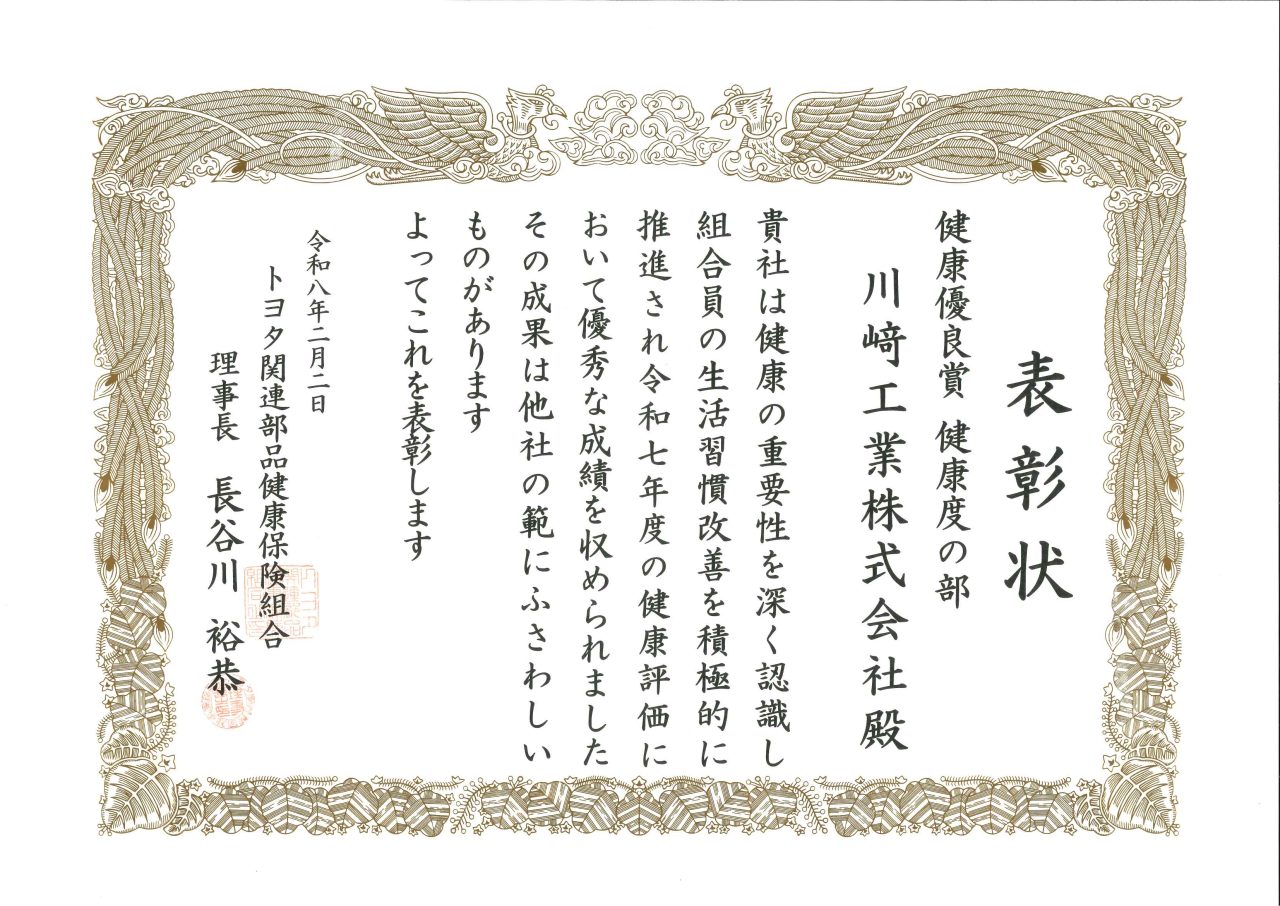 表彰状
健康優良賞 健康度の部
川﨑工業株式会社殿
貴社は健康の重要性を深く認識し
組合員の生活習慣改善を積極的に
推進され令和七年度の健康評価に
おいて優秀な成績を収められました
その成果は他社の範にふさわしい
ものがあります
よってこれを表彰します
令和八年二月二日
トヨタ関連部品健康保険組合
理事長 長谷川 裕恭